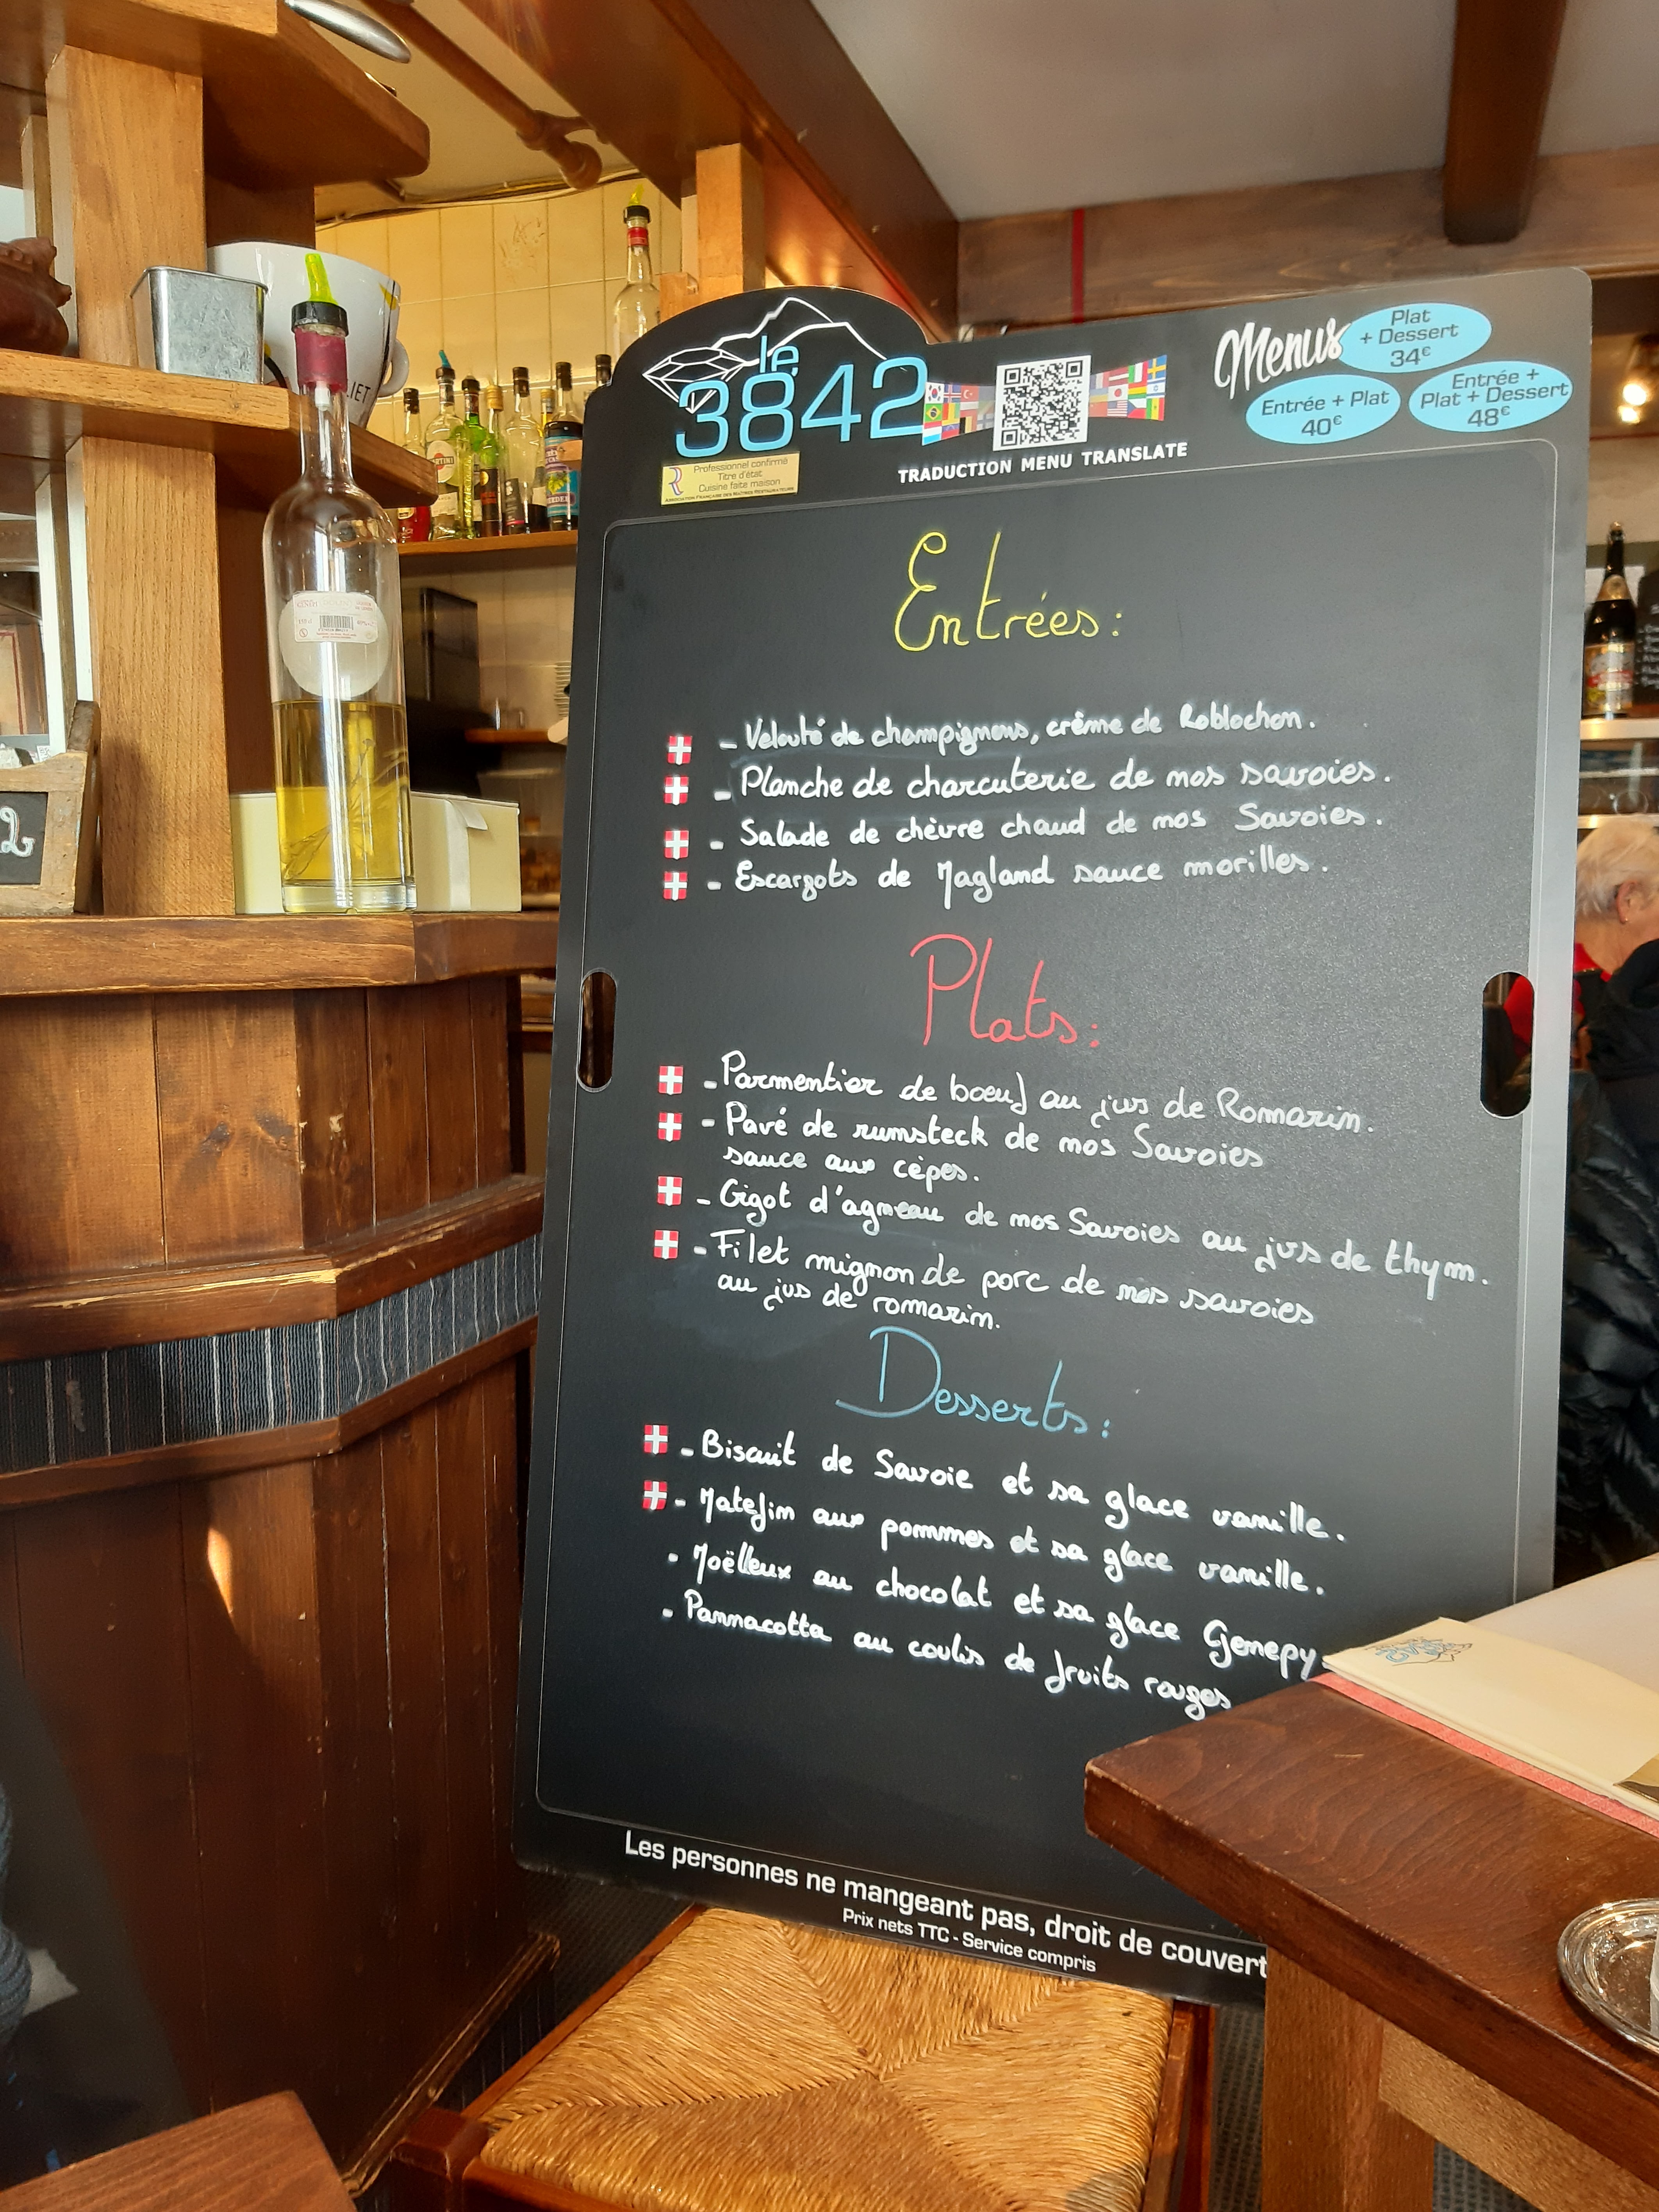 le
3842
Professionnel confirmé
Titre d'état
Cuisine faite maison
ASSOCIATION FRANÇAISE DES MAÎTRES RESTAURATEURS
TRADUCTION MENU TRANSLATE
Menus
Plat
+ Dessert
34€
Entrée + Plat
40€
Entrée +
Plat + Dessert
48€
Entrées :
- Velouté de champignons, crême de Roblochon.
- Planche de charcuterie de nos savoies.
- Salade de chèvre chaud de nos Savoies.
- Escargots de Magland sauce morilles.
Plats :
- Parmentier de boeuf au jus de Romarin.
- Pavé de rumsteck de nos Savoies
sauce aux cèpes.
- Gigot d'agneau de nos Savoies au jus de thym.
- Filet mignon de porc de nos savoies
au jus de romarin.
Desserts :
- Biscuit de Savoie et sa glace vanille.
- Matefim aux pommes et sa glace vanille.
- Moëlleux au chocolat et sa glace Genepy
- Pannacotta au coulis de fruits rouges
Les personnes ne mangeant pas, droit de couvert
Prix nets TTC - Service compris